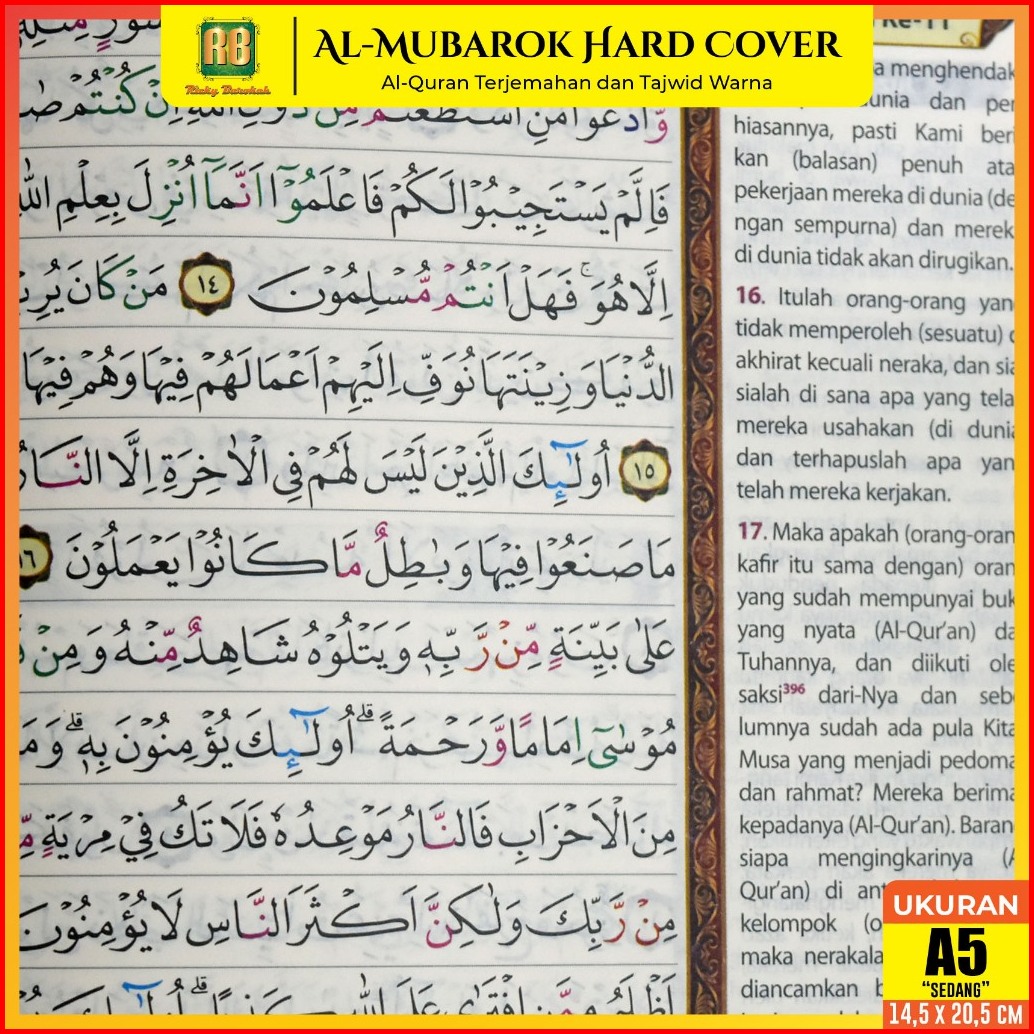 RB
Rizky Barokah
AL-MUBAROK HARD COVER
Al-Quran Terjemahan dan Tajwid Warna
وَّادْعُوا مَنِ اسْتَطَعْتُمْ مِّنْ دُوْنِ اللّٰهِ اِنْ كُنْتُمْ
فَاِلَّمْ يَسْتَجِيْبُوْا لَكُمْ فَاعْلَمُوْٓا اَنَّمَآ اُنْزِلَ بِعِلْمِ اللّٰ
اِلَّا هُوَ ۚ فَهَلْ اَنْتُمْ مُّسْلِمُوْنَ ١٤ مَنْ كَانَ يُرِيْ
الدُّنْيَا وَزِيْنَتَهَا نُوَفِّ اِلَيْهِمْ اَعْمَالَهُمْ فِيْهَا وَهُمْ فِيْهَا
١٥ اُولٰۤىِٕكَ الَّذِيْنَ لَيْسَ لَهُمْ فِى الْاٰخِرَةِ اِلَّا النَّارُ
مَا صَنَعُوْا فِيْهَا وَبٰطِلٌ مَّا كَانُوْا يَعْمَلُوْنَ
عَلٰى بَيِّنَةٍ مِّنْ رَّبِّهٖ وَيَتْلُوْهُ شَاهِدٌ مِّنْهُ وَمِنْ
مُوْسٰىٓ اِمَامًا وَّرَحْمَةً ۗ اُولٰۤىِٕكَ يُؤْمِنُوْنَ بِهٖ ۗ وَمَ
مِنَ الْاَحْزَابِ فَالنَّارُ مَوْعِدُهٗ فَلَا تَكُ فِيْ مِرْيَةٍ
مِنْ رَّبِّكَ وَلٰكِنَّ اَكْثَرَ النَّاسِ لَا يُؤْمِنُوْنَ
Ke-11
a menghendak
unia dan per
hiasannya, pasti Kami beri
kan (balasan) penuh ata
pekerjaan mereka di dunia (de
ngan sempurna) dan merek
di dunia tidak akan dirugikan.
16. Itulah orang-orang yan
tidak memperoleh (sesuatu)
akhirat kecuali neraka, dan sia
sialah di sana apa yang tela
mereka usahakan (di dunia
dan terhapuslah apa yan
telah mereka kerjakan.
17. Maka apakah (orang-oran
kafir itu sama dengan) oran
yang sudah mempunyai buk
yang nyata (Al-Qur'an) da
Tuhannya, dan diikuti ole
saksi³⁹⁶ dari-Nya dan seb
lumnya sudah ada pula Kita
Musa yang menjadi pedoma
dan rahmat? Mereka berima
kepadanya (Al-Qur'an). Baran
siapa mengingkarinya (A
Qur'an) di ant
kelompok (o
maka nerakala
diancamkan b
UKURAN
A5
"SEDANG"
14,5 X 20,5 CM